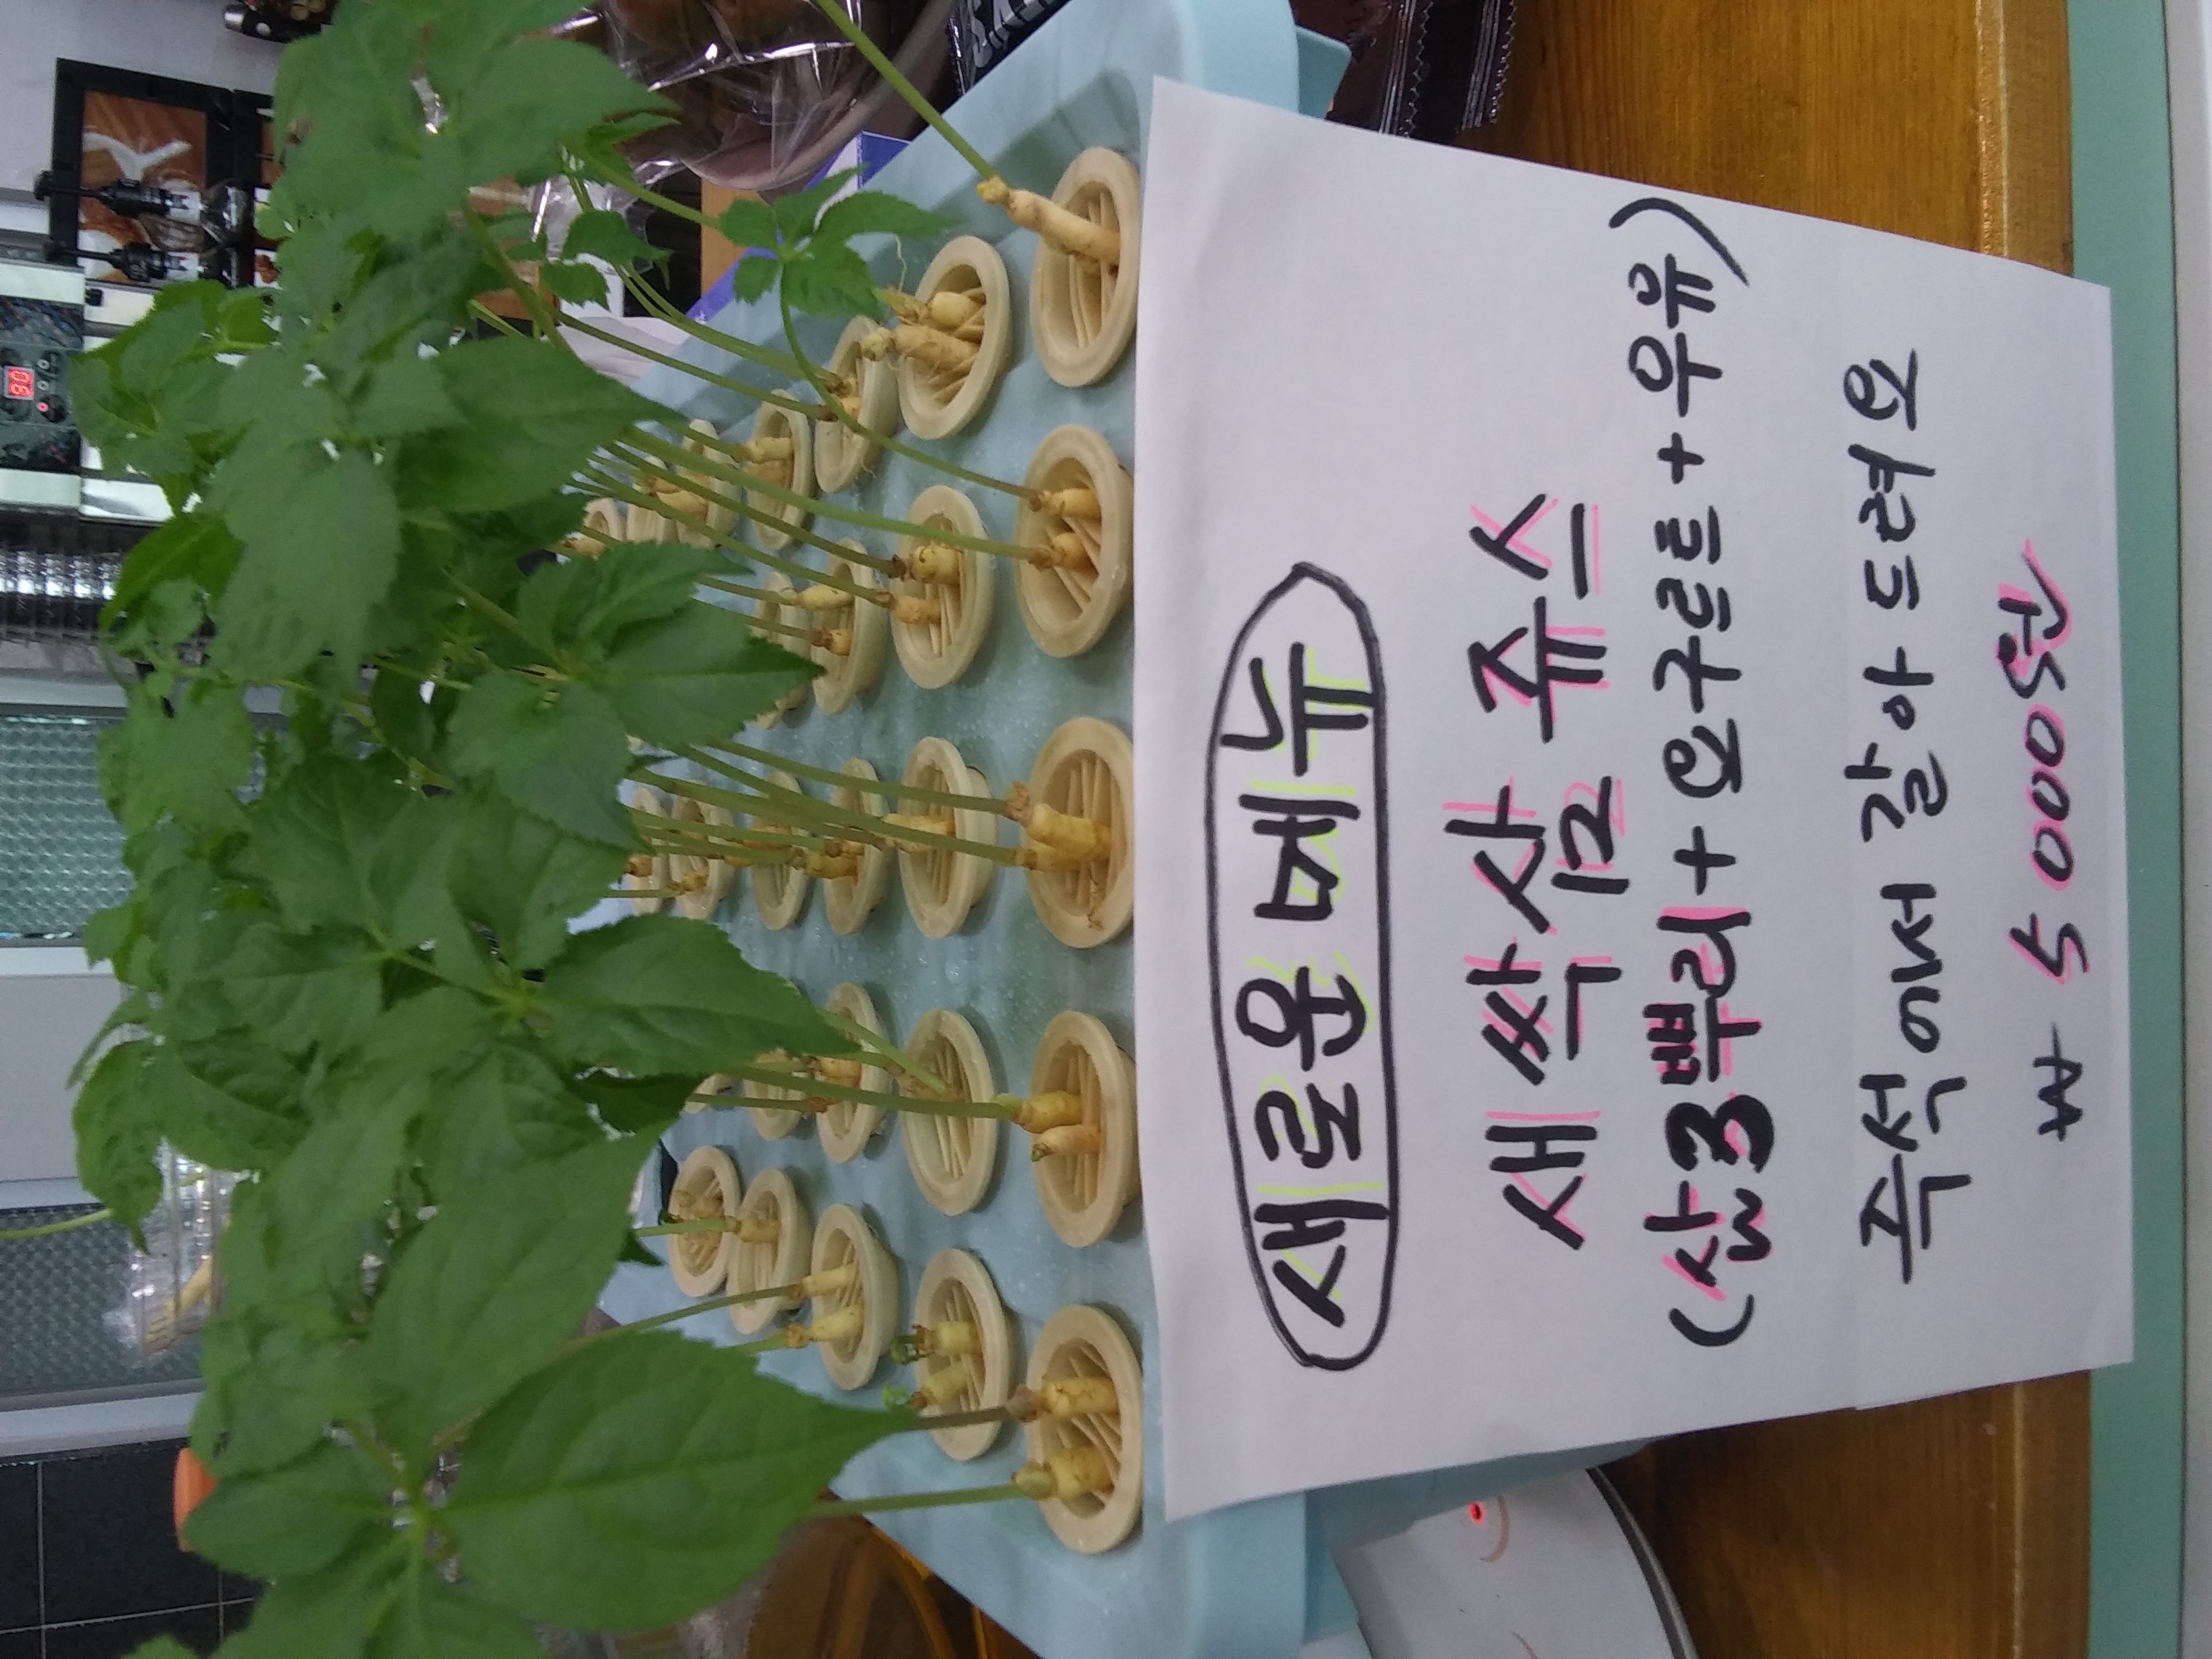 새로운 메뉴
새싹삼 쥬스
(삼3뿌리+요구르트+우유)
즉석에서 갈아 드려요
₩ 5000원